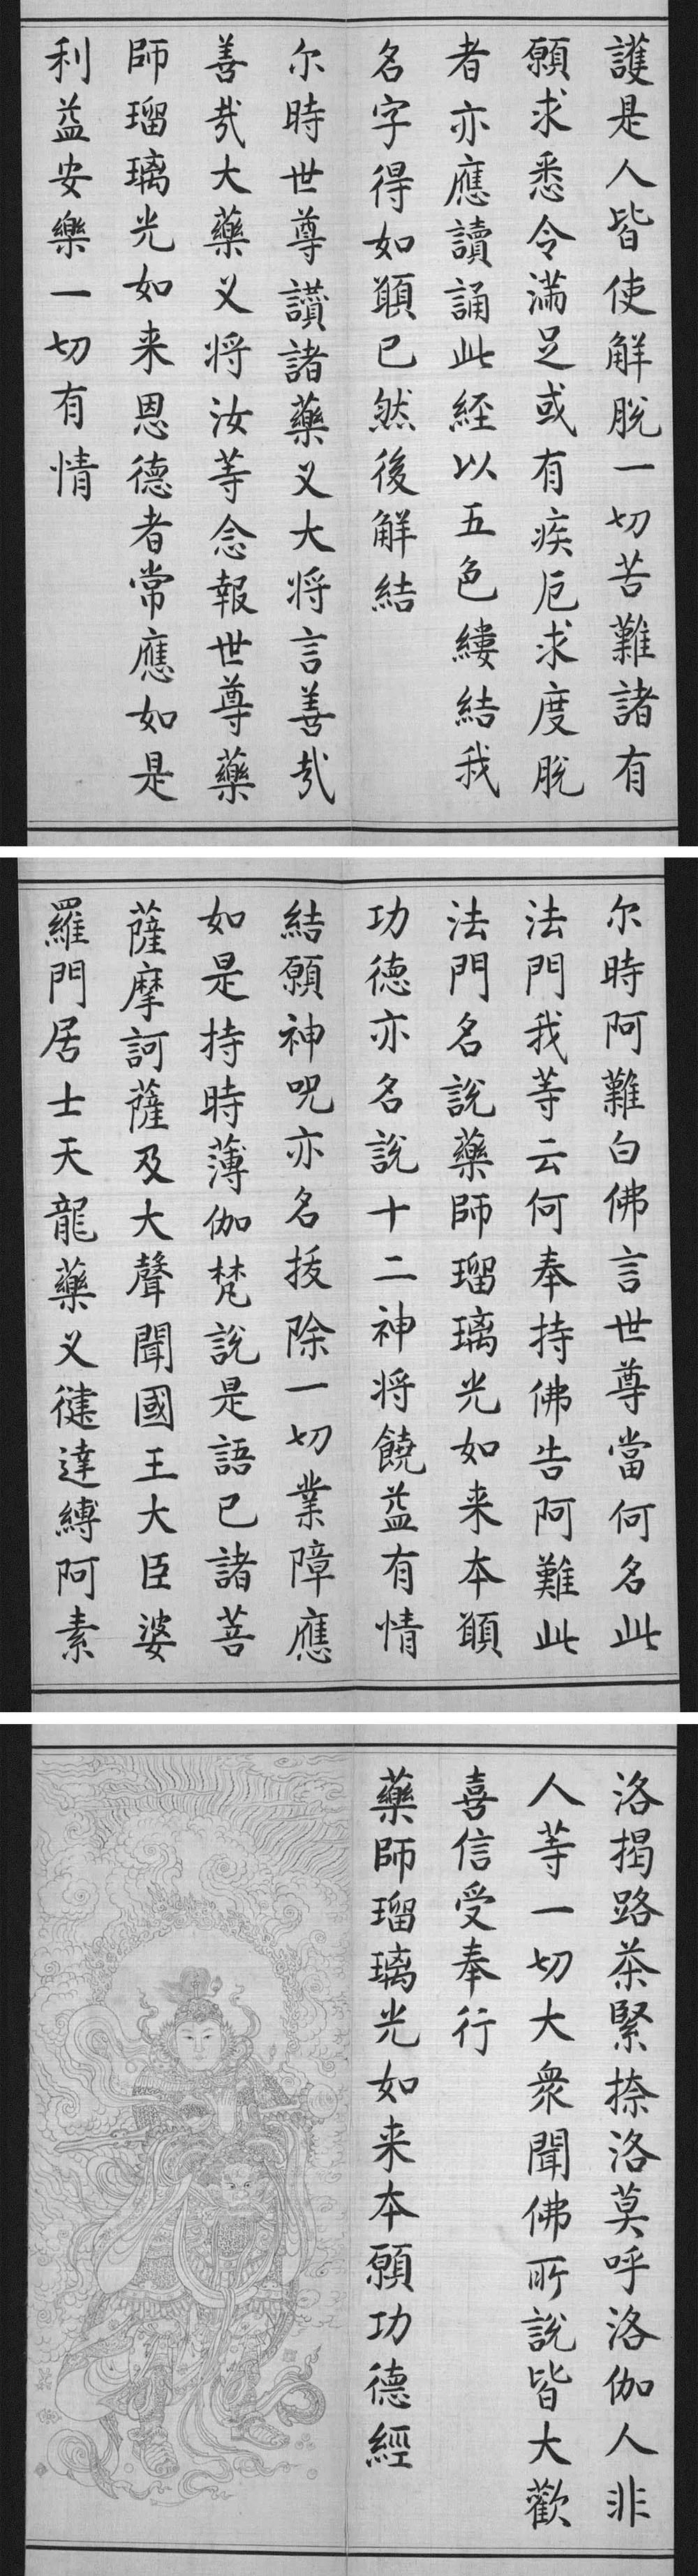 護是人皆使解脫一切苦難諸有
願求悉令滿足或有疾厄求度脫
者亦應讀誦此經以五色縷結我
名字得如願已然後解結
尔時世尊讚諸藥叉大将言善哉
善哉大藥叉将汝等念報世尊藥
師瑠璃光如来恩德者常應如是
利益安樂一切有情
尔時阿難白佛言世尊當何名此
法門我等云何奉持佛告阿難此
法門名說藥師瑠璃光如来本願
功德亦名說十二神将饒益有情
結願神呪亦名拔除一切業障應
如是持時薄伽梵說是語已諸菩
薩摩訶薩及大聲聞國王大臣婆
羅門居士天龍藥叉健達縛阿素
洛揭路茶緊捺洛莫呼洛伽人非
人等一切大衆聞佛所說皆大歡
喜信受奉行
藥師瑠璃光如来本願功德經